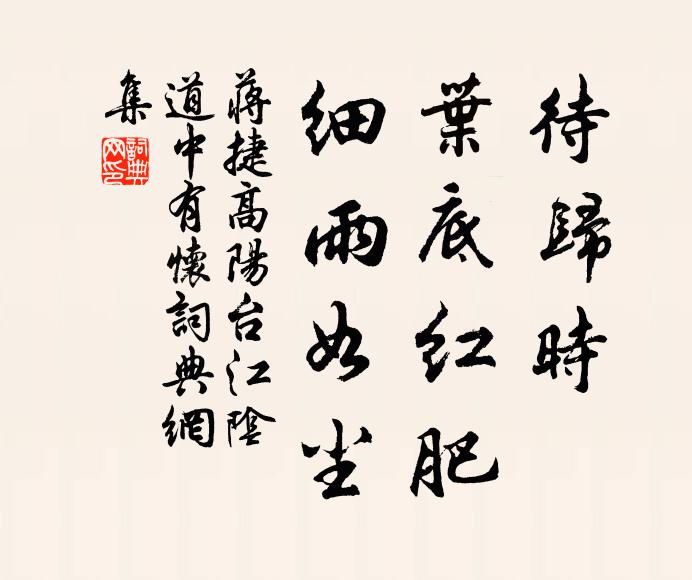 待歸時
葉底红肥
细雨如尘
蔣捷高陽台江陰
道中有懷詞典網
集
詞典
网印